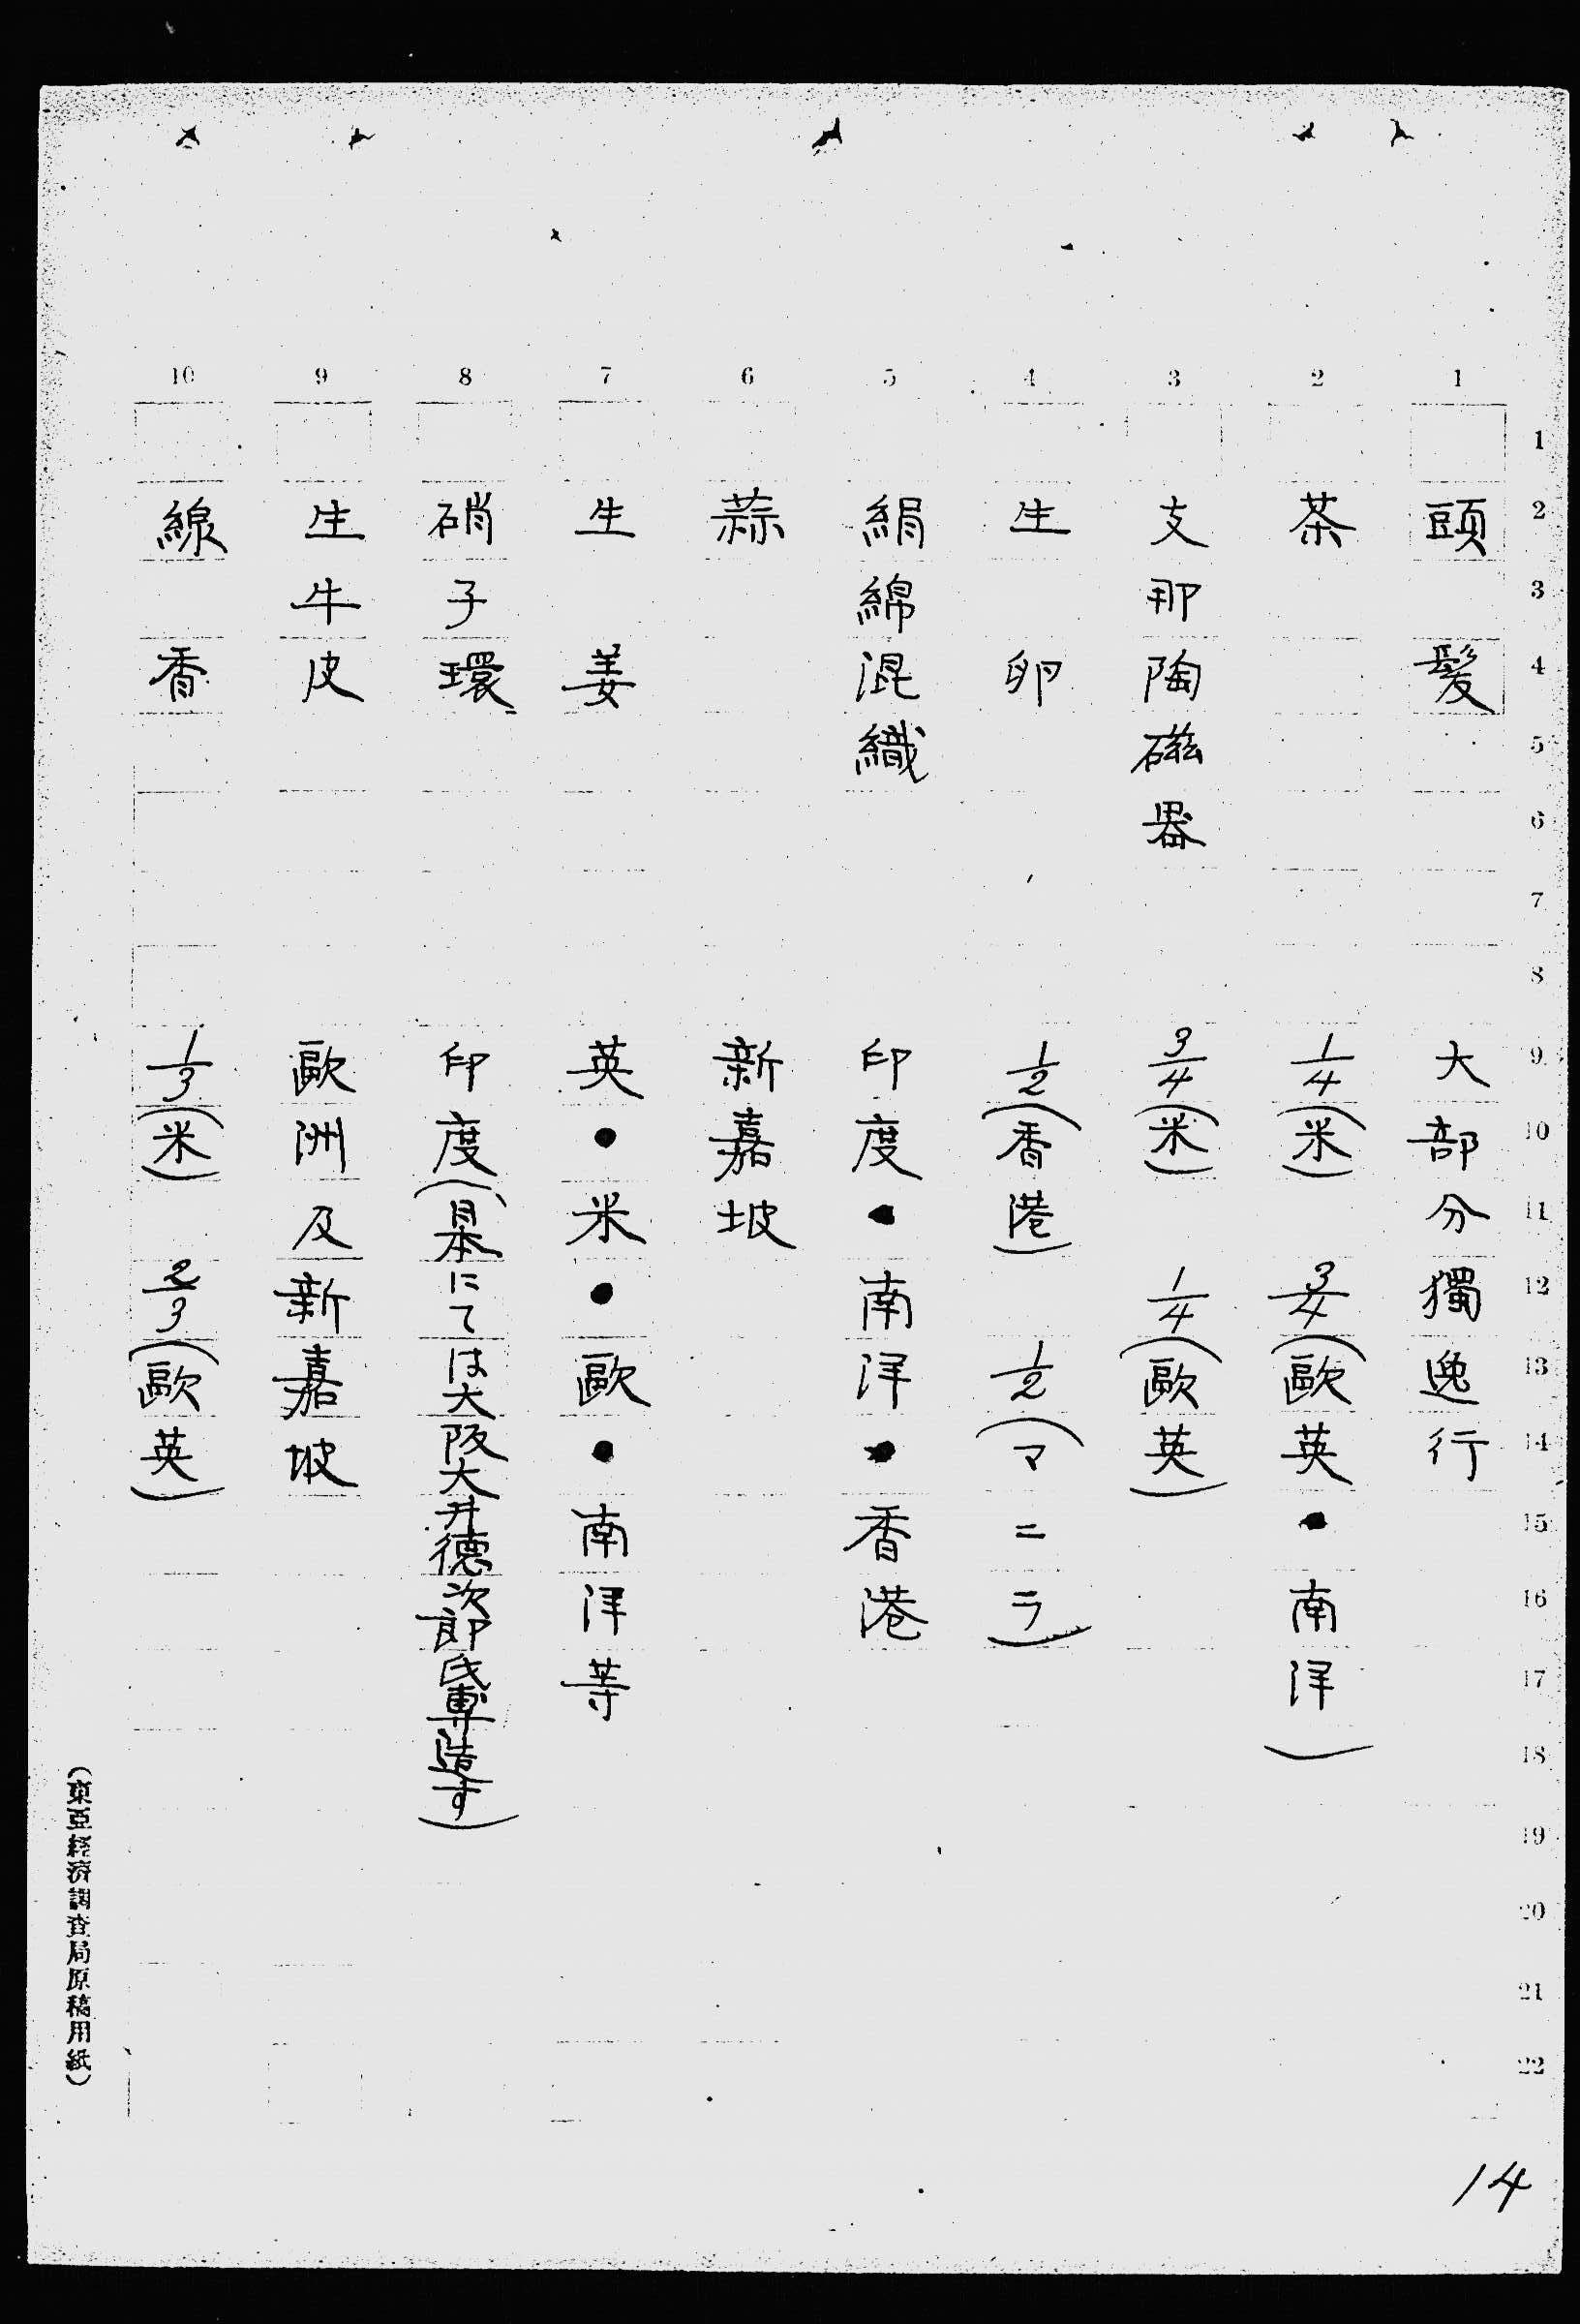 頭髪　大部分獨逸行
茶　1/4(米)　3/4(歐英・南洋)
支那陶磁器　3/4(米)　1/4(歐英)
生卵　1/2(香港)　1/2(マニラ)
絹綿混織　印度・南洋・香港
蒜　新嘉坡
生姜　英・米・歐・南洋等
硝子環　印度(日本にては大阪大井徳次郎氏専造す)
生牛皮　歐洲及新嘉坡
線香　1/3(米)　2/3(歐英)
1 2 3 4 5 6 7 8 9 10
1
2
3
4
5
6
7
8
9
10
11
12
13
14
15
16
17
18
19
20
21
22
(東亞経済調査局原稿用紙)
14